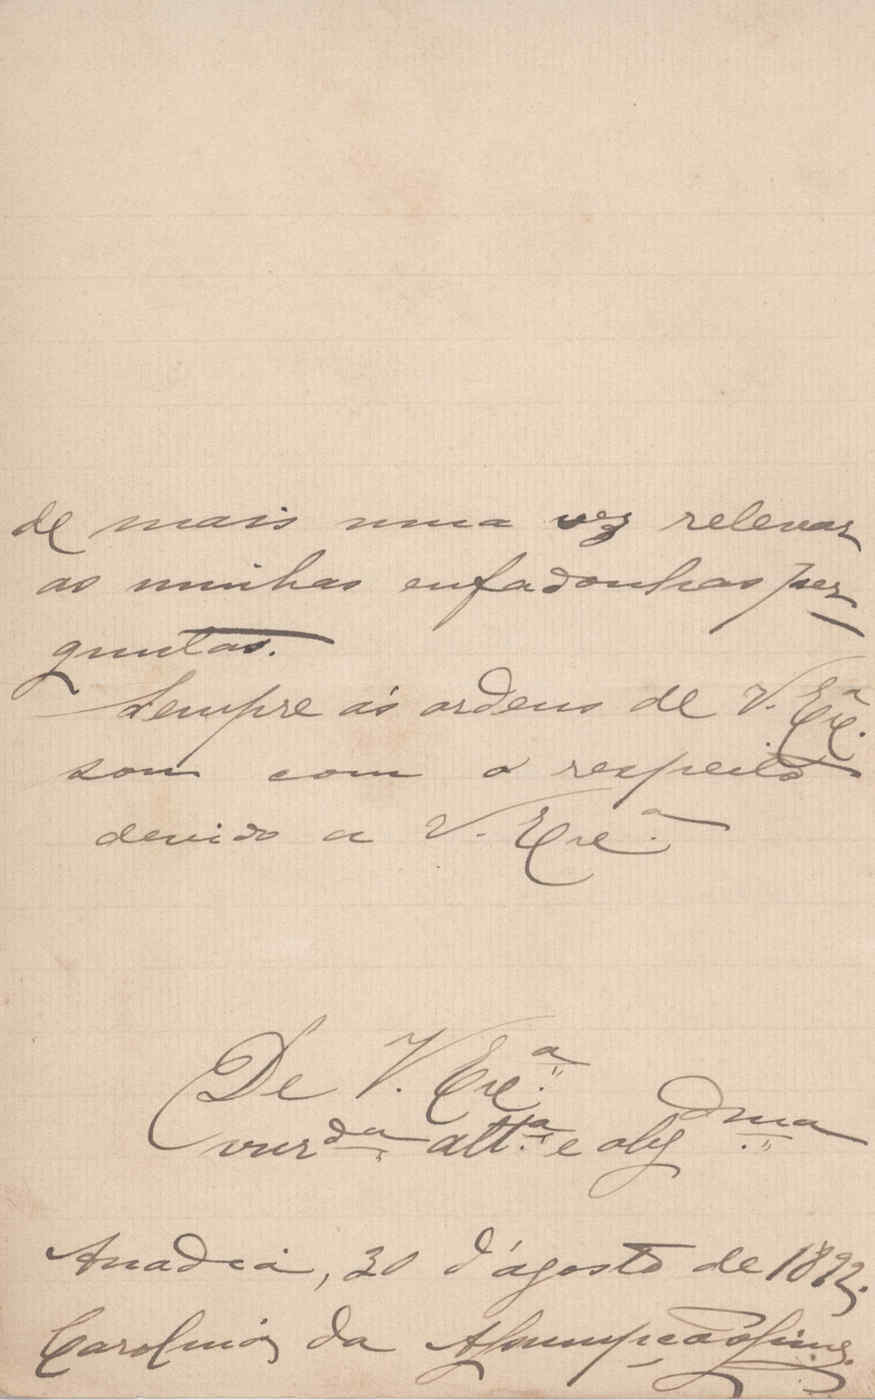 de mais uma vez relevar
as minhas enfadonhas per-
guntas.
Sempre ás ordens de V. Exª.
sou com o respeito
devido a V. Exª.
De V. Exª.
attª. e obgdma
Anadia, 30 d'agosto de 1892.
Carolina da Assumpção